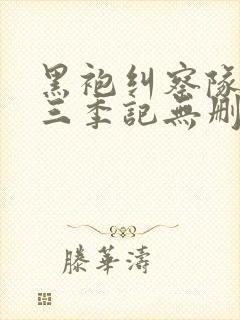 黑袍纠察隊
三季記無删
滕華濤